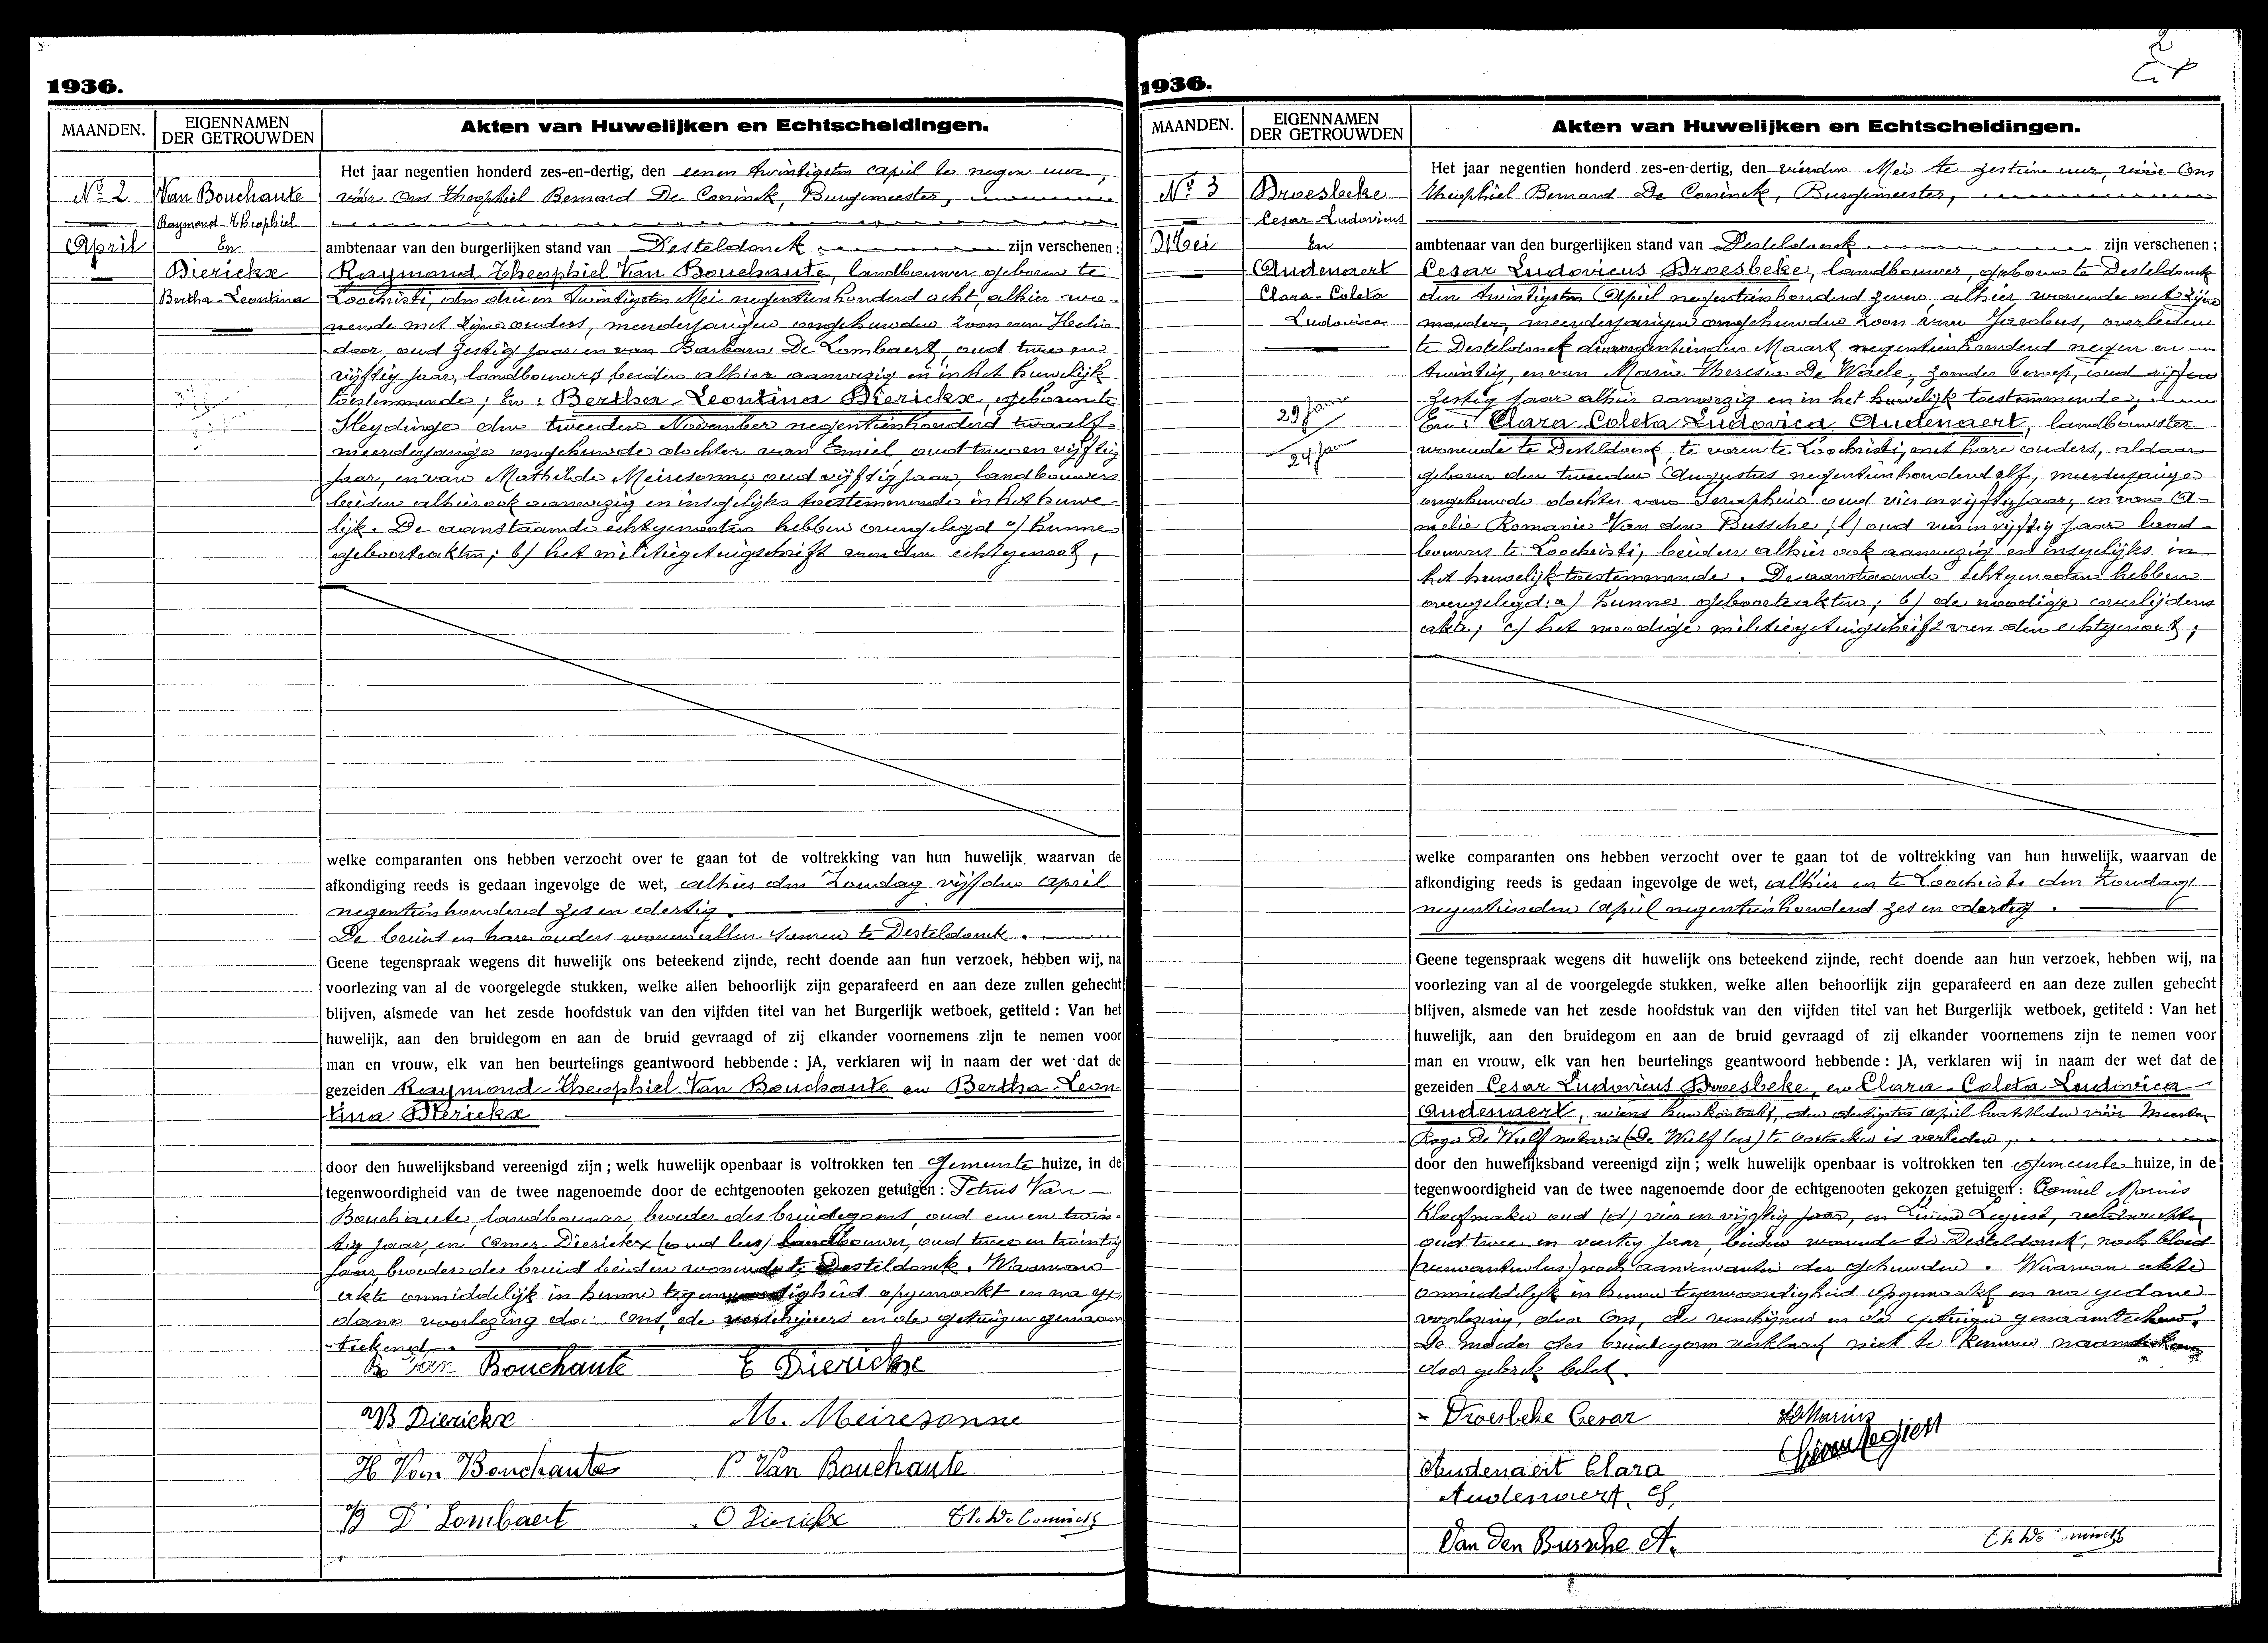 1936.
MAANDEN.
EIGENNAMEN
DER GETROUWDEN
Akten van Huwelijken en Echtscheidingen.
No 2
April
Van Bouchaute
Raymond-Theophiel
En
Dierickx
Bertha-Leontina
Het jaar negentien honderd zes-en-dertig, den eenen twintigsten April te negen uur,
vóór Ons Theophiel Bernard De Coninck, Burgemeester,
ambtenaar van den burgerlijken stand van Desteldonck zijn verschenen :
Raymond Theophiel Van Bouchaute, landbouwer geboren te
Loochristi, den drie en twintigsten Mei negentienhonderd acht, alhier wo-
nende met zijne ouders, meerderjarigen ongehuwden zoon van Helio-
door, oud zestig jaar en van Barbara De Lombaert, oud twee en
vijftig jaar, landbouwers, beiden alhier aanwezig en in het huwelijk
toestemmende ; En : Bertha Leontina Dierickx, geboren te
Sleydinge den tweeden November negentienhonderd twaalf
meerderjarige ongehuwde dochter van Emiel oud twee en vijftig
jaar, en van Mathilda Meiresonne, oud vijftig jaar, landbouwers
beiden alhier ook aanwezig en insgelijks toestemmende in het huwe-
lijk. De aanstaande echtgenooten hebben overgelegd a/ hunne
geboorteakten; b/ het militiegetuigschrift van den echtgenoot,
welke comparanten ons hebben verzocht over te gaan tot de voltrekking van hun huwelijk, waarvan de
afkondiging reeds is gedaan ingevolge de wet, alhier den Zondag vijfden April
negentienhonderd zes en dertig.
De bruid en hare ouders wonen allen samen te Desteldonck.
Geene tegenspraak wegens dit huwelijk ons beteekend zijnde, recht doende aan hun verzoek, hebben wij, na
voorlezing van al de voorgelegde stukken, welke allen behoorlijk zijn geparafeerd en aan deze zullen gehecht
blijven, alsmede van het zesde hoofdstuk van den vijfden titel van het Burgerlijk wetboek, getiteld : Van het
huwelijk, aan den bruidegom en aan de bruid gevraagd of zij elkander voornemens zijn te nemen voor
man en vrouw, elk van hen beurtelings geantwoord hebbende : JA, verklaren wij in naam der wet dat de
gezeiden Raymond-Theophiel Van Bouchaute en Bertha-Leon-
tina Dierickx
door den huwelijksband vereenigd zijn ; welk huwelijk openbaar is voltrokken ten Gemeente huize, in de
tegenwoordigheid van de twee nagenoemde door de echtgenooten gekozen getuigen : Petrus Van
Bouchaute, landbouwer, broeder des bruidegoms, oud een en twin-
tig jaar, en Omer Dierickx (oud lees) landbouwer, oud twee en twintig
jaar broeder der bruid beiden wonende te Desteldonck. Waarvan
akte onmiddelijk in hunne tegenwoordigheid opgemaakt en na ge-
dane voorlezing door Ons, de verschijners en de getuigen genaam-
teekend.
R Van Bouchaute E Dierickx
B Dierickx M. Meiresonne
H Van Bouchaute P Van Bouchaute
B D Lombaert O Dierickx Th. De Coninck
1936.
2
MAANDEN.
EIGENNAMEN
DER GETROUWDEN
Akten van Huwelijken en Echtscheidingen.
No 3
Mei
Droesbeke
Cesar Ludovicus
En
Audenaert
Clara-Coleta
Ludovica
29 janv
24 jan
Het jaar negentien honderd zes-en-dertig, den vierden Mei te zestien uur, vóór Ons
Theophiel Bernard De Coninck, Burgemeester,
ambtenaar van den burgerlijken stand van Desteldonck zijn verschenen ;
Cesar Ludovicus Droesbeke, landbouwer, geboren te Desteldonck
den twintigsten April negentienhonderd zeven, alhier wonende met zijne
moeder, meerderjarigen ongehuwden zoon van Jacobus, overleden
te Desteldonck den negentienden Maart negentienhonderd negen en
twintig, en van Maria Theresia De Waele, zonder beroep, oud vijf en
zestig jaar alhier aanwezig en in het huwelijk toestemmende;
En : Clara Coleta Ludovica Audenaert, landbouwster
wonende te Desteldonck, te voren te Loochristi, met hare ouders, aldaar
geboren den tweeden Augustus negentienhonderd elf, meerderjarige
ongehuwde dochter van Seraphinus oud vier en vijftig jaar, en van A-
melie Romanie Van den Bussche, (l) oud vier en vijftig jaar land-
bouwers te Loochristi, beiden alhier ook aanwezig en insgelijks in
het huwelijk toestemmende. De aanstaande echtgenooten hebben
overgelegd: a/ hunne geboorteakten; b/ de noodige overlijdens
akte; c/ het noodige militiegetuigschrift van den echtgenoot;
welke comparanten ons hebben verzocht over te gaan tot de voltrekking van hun huwelijk, waarvan de
afkondiging reeds is gedaan ingevolge de wet, alhier en te Loochristi den Zondag
negentienden April negentienhonderd zes en dertig.
Geene tegenspraak wegens dit huwelijk ons beteekend zijnde, recht doende aan hun verzoek, hebben wij, na
voorlezing van al de voorgelegde stukken, welke allen behoorlijk zijn geparafeerd en aan deze zullen gehecht
blijven, alsmede van het zesde hoofdstuk van den vijfden titel van het Burgerlijk wetboek, getiteld : Van het
huwelijk, aan den bruidegom en aan de bruid gevraagd of zij elkander voornemens zijn te nemen voor
man en vrouw, elk van hen beurtelings geantwoord hebbende : JA, verklaren wij in naam der wet dat de
gezeiden Cesar Ludovicus Droesbeke, en Clara-Coleta Ludovica
Audenaert, wiens huwkontrakt, den dertigsten April laatstleden vóór Meester
Roger De Wulf notaris (De Wulf lees) te Oostacker is verleden,
door den huwelijksband vereenigd zijn ; welk huwelijk openbaar is voltrokken ten Gemeente huize, in de
tegenwoordigheid van de twee nagenoemde door de echtgenooten gekozen getuigen :
oud vier en vijftig jaar, en
oud twee en veertig jaar, beiden wonende te Desteldonck, noch bloed
(verwanten lees) noch aanverwanten der gehuwden. Waarvan akte
onmiddelijk in hunne tegenwoordigheid opgemaakt en na gedane
voorlezing, door Ons, de verschijners en de getuigen genaamteekend.
De moeder des bruidegoms verklaart niet te kunnen naamteekenen
door gebrek belet.
Droesbeke Cesar
Audenaert Clara
Audenaert S,
Van den Bussche A.
Th De Coninck